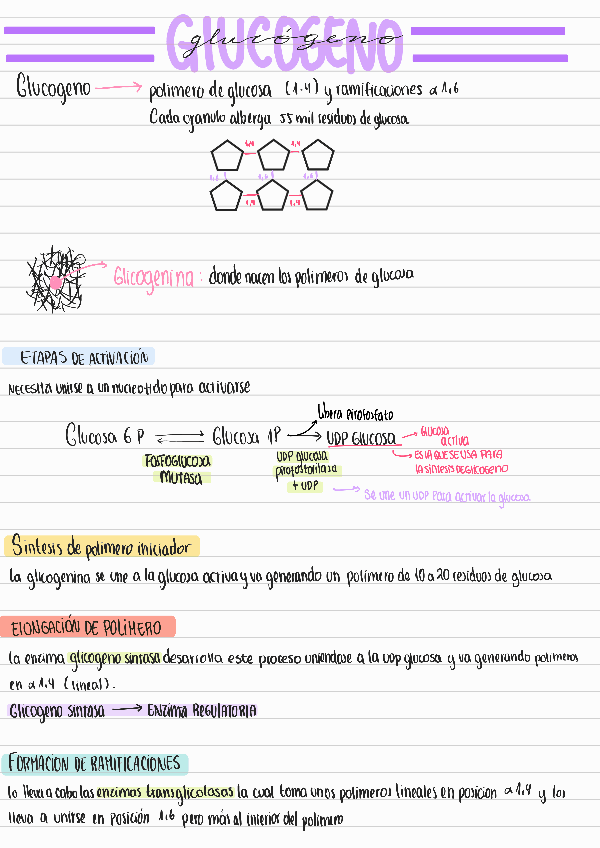 GLUCOGENO
glucógeno
Glucogeno → polimero de glucosa (1.4) y ramificaciones α 1,6
Cada granulo alberga 55 mil residuos de glucosa
1,4 1,4
1,6 1,6 1,6
1,4 1,4
Glicogenina: donde nacen los polimeros de glucosa
ETAPAS DE ACTIVACIÓN
NECESITA unirse a un nucleotido para activarse
Libera pirofosfato
Glucosa 6 P Glucosa 1P → UDP GLUCOSA → GLUCOSA activa
→ ES LA QUE SE USA PARA la sintesis DE GLICOGENO
FOSFOGLUCOSA MUTASA
UDP glucosa pirofosforilasa + UDP
→ Se une un UDP para activar la glucosa
Síntesis de polimero iniciador
la glicogenina se une a la glucosa activa y va generando un polimero de 10 a 20 residuos de glucosa
ELONGACIÓN DE POLÍMERO
la enzima glicogeno sintasa desarrolla este proceso uniendose a la UDP glucosa y va generando polimeros
en α 1.4 (lineal).
Glicogeno sintasa → ENZIMA REGULATORIA
FORMACION DE RAMIFICACIONES
lo lleva a cabo las enzimas transglicolasas la cual toma unos polimeros lineales en posicion α 1.4 y los
lleva a unirse en posición 1,6 pero más al interior del polimero